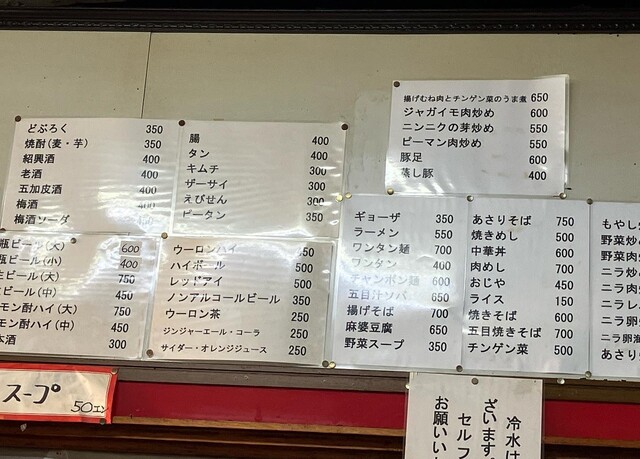 どぶろく 350
焼酎(麦・芋) 350
紹興酒 400
老酒 400
五加皮酒 400
梅酒 400
梅酒ソーダ
瓶ビール(大) 600
瓶ビール(小) 400
ビール(大) 750
ビール(中) 450
モン酎ハイ(大) 750
モン酎ハイ(中) 450
本酒 300
スープ 50エン
腸 400
タン 400
キムチ 300
ザーサイ 300
えびせん 300
ピータン 350
ウーロンハイ
ハイボール 500
レッドアイ 500
ノンアルコールビール 350
ウーロン茶 250
ジンジャーエール・コーラ 250
サイダー・オレンジジュース 250
揚げむね肉とチンゲン菜のうま煮 650
ジャガイモ肉炒め 600
ニンニクの芽炒め 550
ピーマン肉炒め 550
豚足 600
蒸し豚 400
ギョーザ 350
ラーメン 550
ワンタン麺 700
ワンタン 400
チャンポン麺 600
五目汁ソバ 650
揚げそば 700
麻婆豆腐 650
野菜スープ 350
あさりそば 750
焼きめし 500
中華丼 600
肉めし 700
おじや 450
ライス 150
焼きそば 600
五目焼きそば 700
チンゲン菜 500
もやし
野菜炒
野菜肉
ニラ炒
ニラ肉
ニラレ
ニラ卵
ニラ卵
あさり
冷水は
ざいます。
セルフ
お願いい